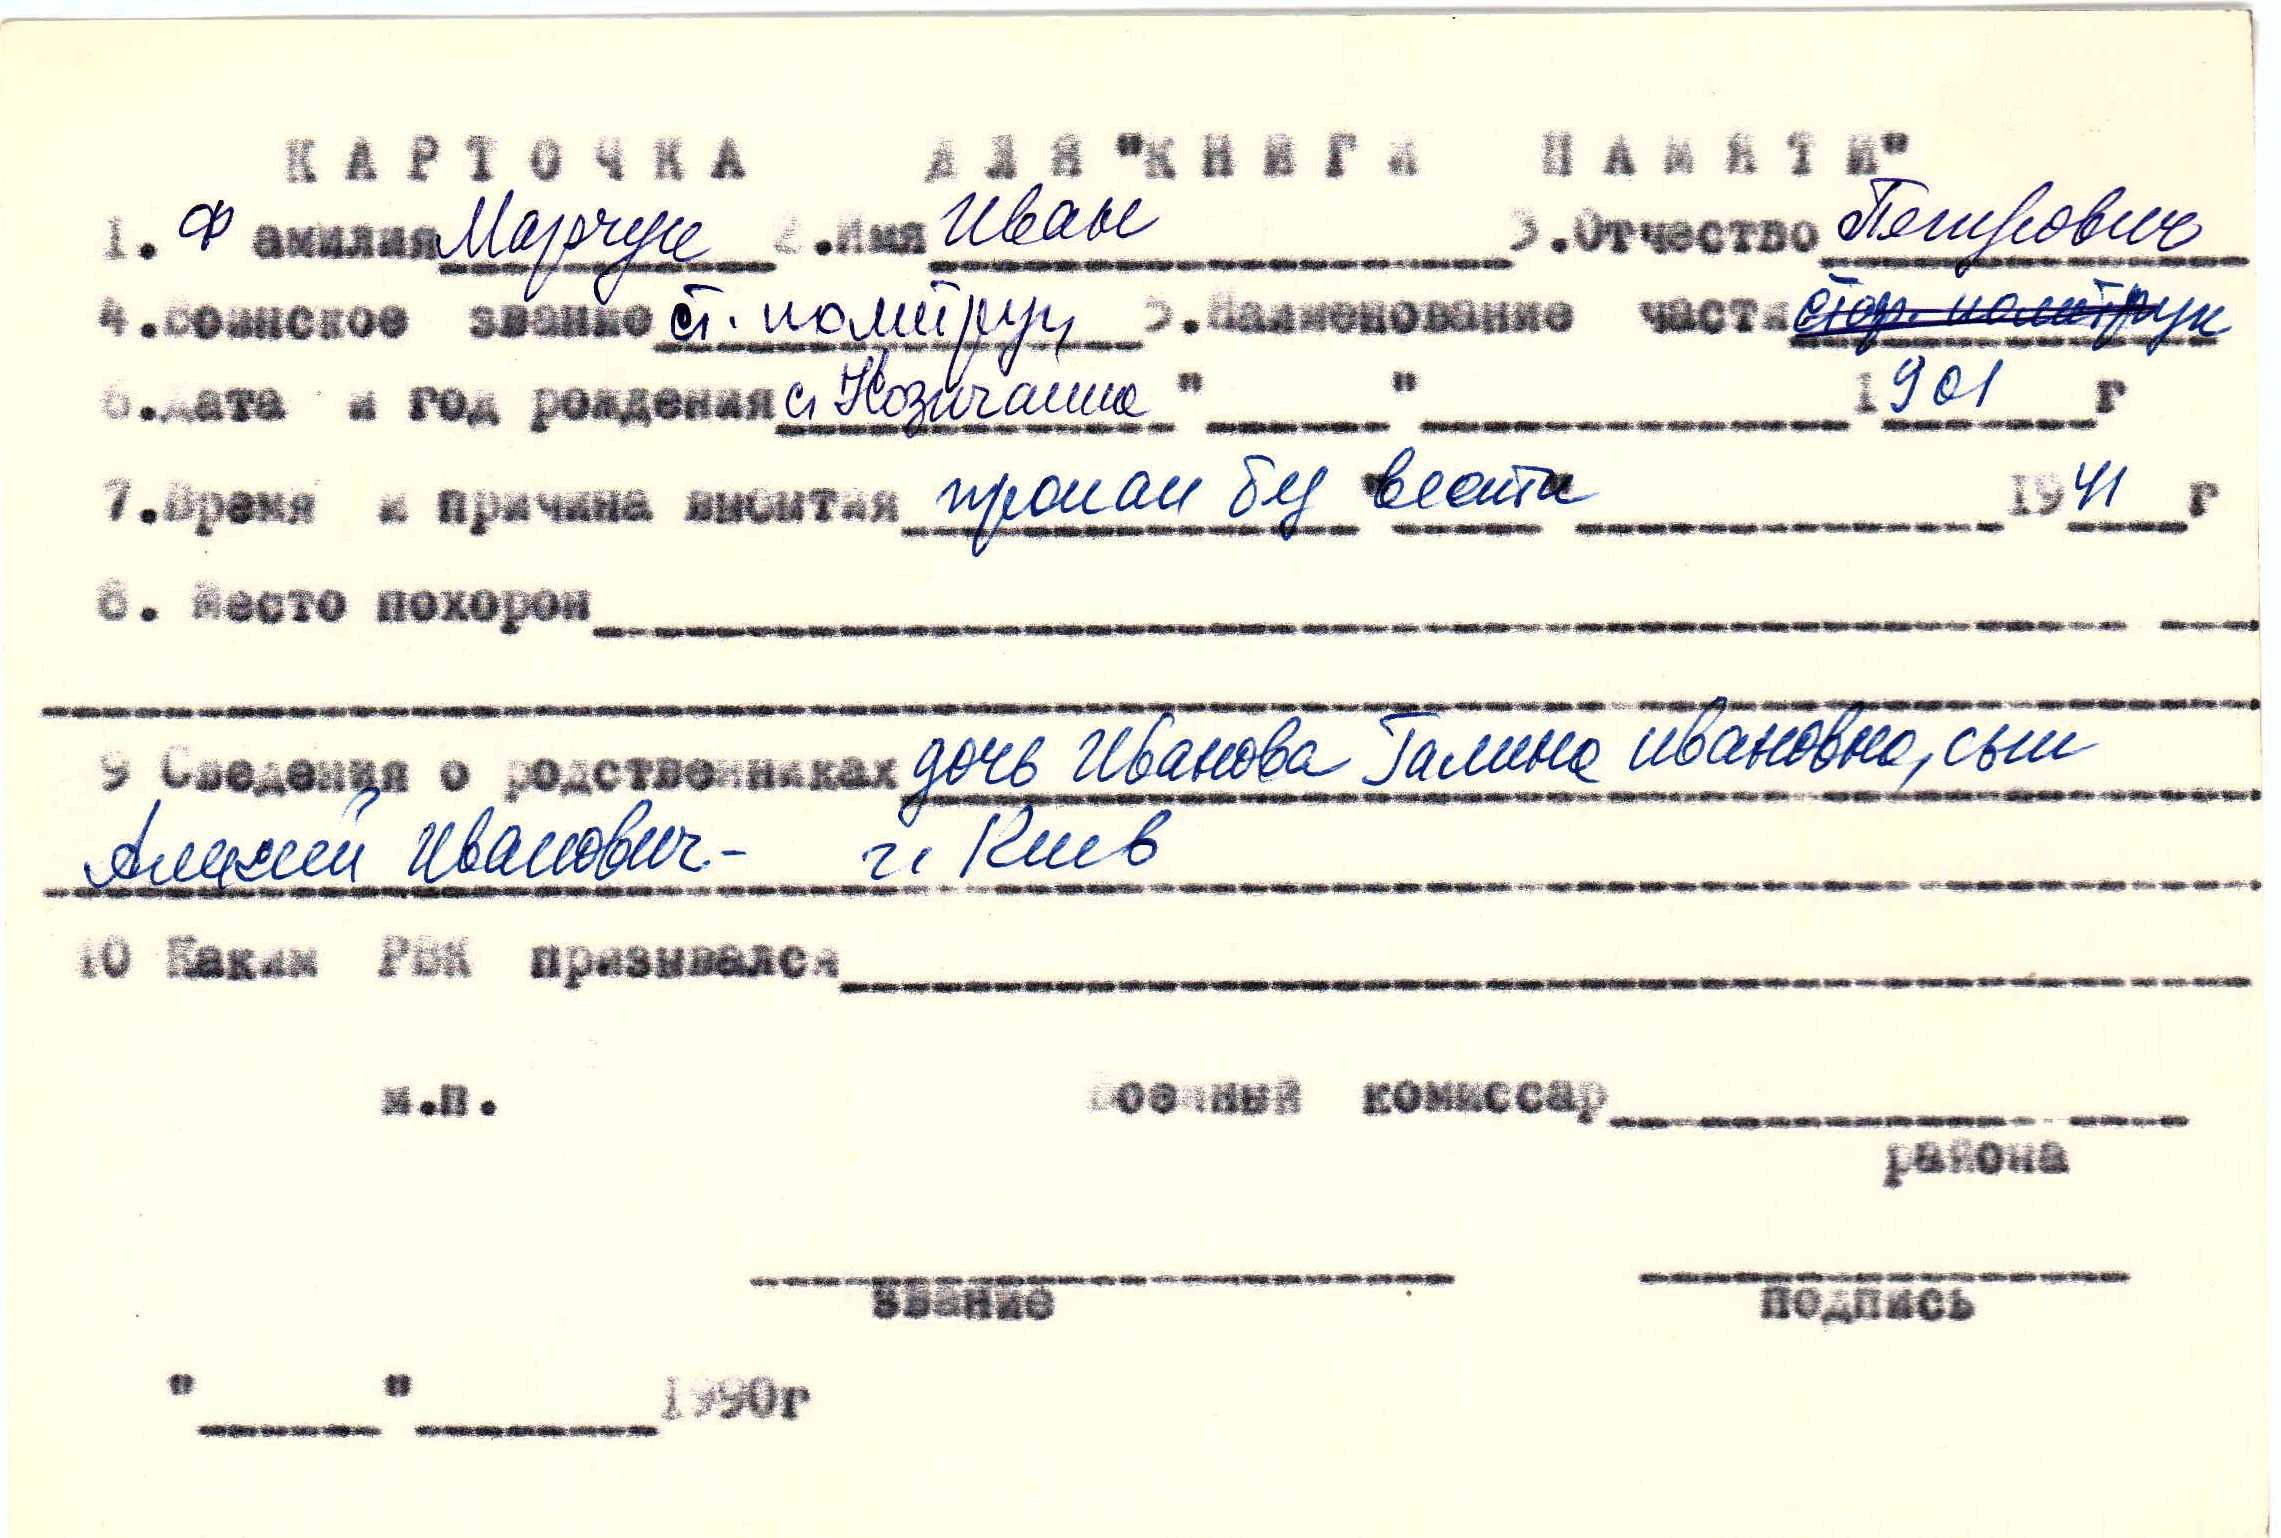 КАРТОЧКА ДЛЯ "КНИГИ ПАМЯТИ"
1. Фамилия Марчук 2.Имя Иван 3.Отчество Петрович
4.Воинское звание ст. политрук 5.Наименование части стар. политрук
6.Дата и год рождения с. " " 1901 г
7.Время и причина выбытия пропал без вести 1941 г
8. Место похорон
9 Сведения о родственниках дочь Иванова Галина Ивановна, сын
Алексей Иванович - г. Киев
10 Каким РВК призывался
м.п. Военный комиссар
района
звание подпись
" " 1990г